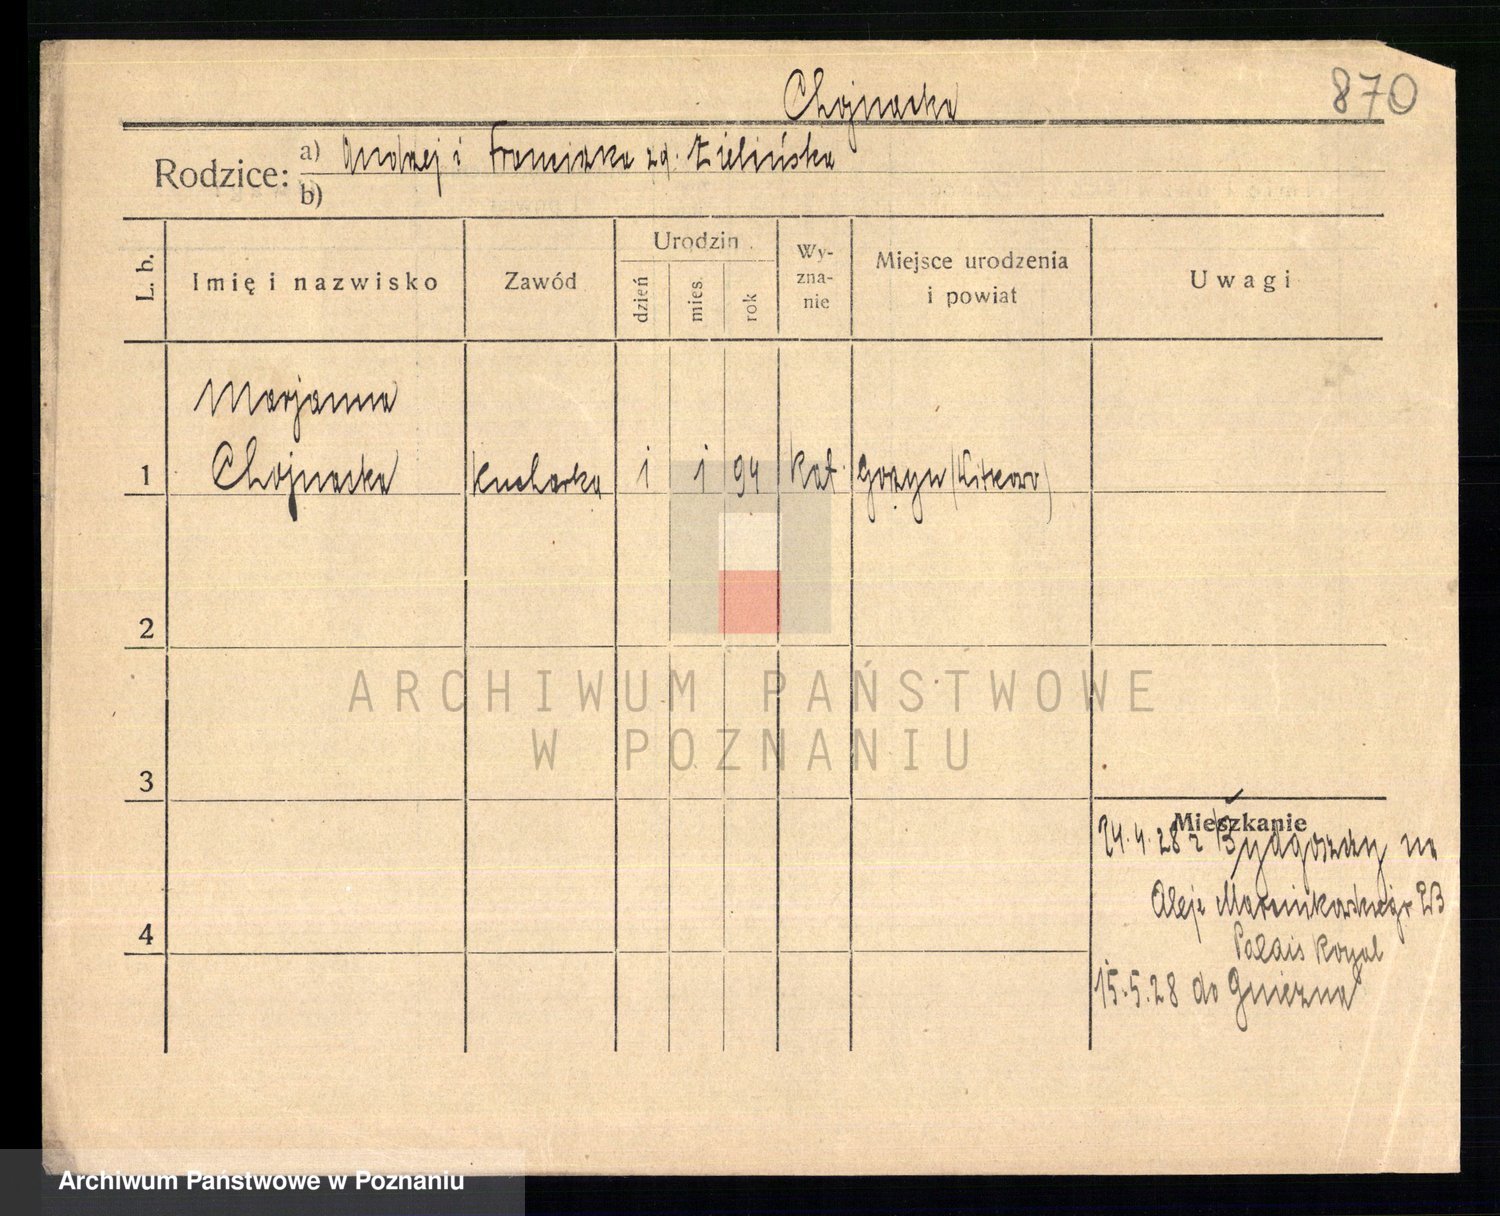 Chojnacka
870
Rodzice: a) Andrzej i Franciszka zd. Zielińska
b)
L. b.
Imię i nazwisko
Zawód
Urodzin
dzień
mies.
rok
Wy-
zna-
nie
Miejsce urodzenia
i powiat
Uwagi
Marjanna
1 Chojnacka kucharka 1 1 94 kat. (Witkowo)
2
3
4
ARCHIWUM PAŃSTWOWE
W POZNANIU
Mieszkanie
24.4.28 z Bydgoszczy na
Aleje Marcinkowskiego
Palais Royal
15.5.28 do Gniezna
Archiwum Państwowe w Poznaniu